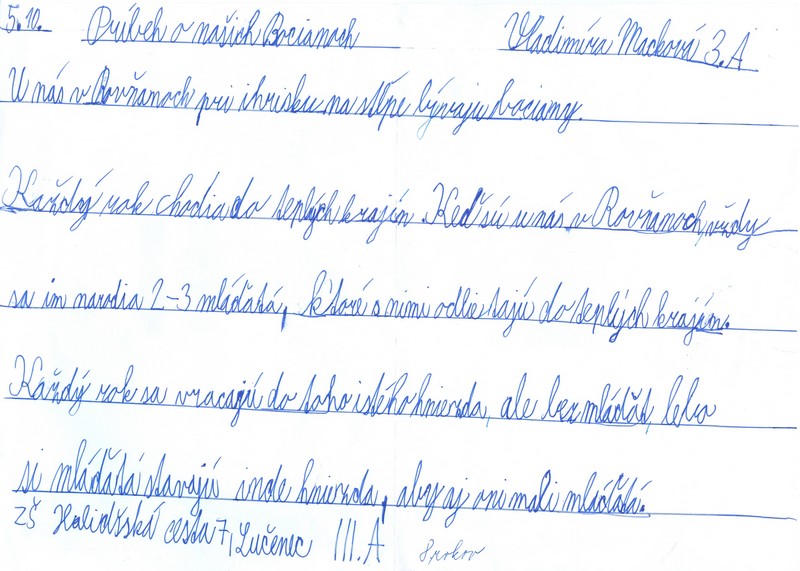 5.10. Príbeh o našich Bocianoch Vladimíra Macková 3.A
U nás v Rovňanoch pri ihrisku na stĺpe bývajú bociany.
Každý rok chodia do teplých krajín. Keď sú u nás v Rovňanoch, vždy
sa im narodia 2-3 mláďatá, ktoré s nimi odlietajú do teplých krajín.
Každý rok sa vracajú do toho istého hniezda, ale bez mláďat, lebo
si mláďatá stavajú inde hniezda, aby aj oni mali mláďatá.
ZŠ Haličská cesta 7, Lučenec III.A 8 rokov